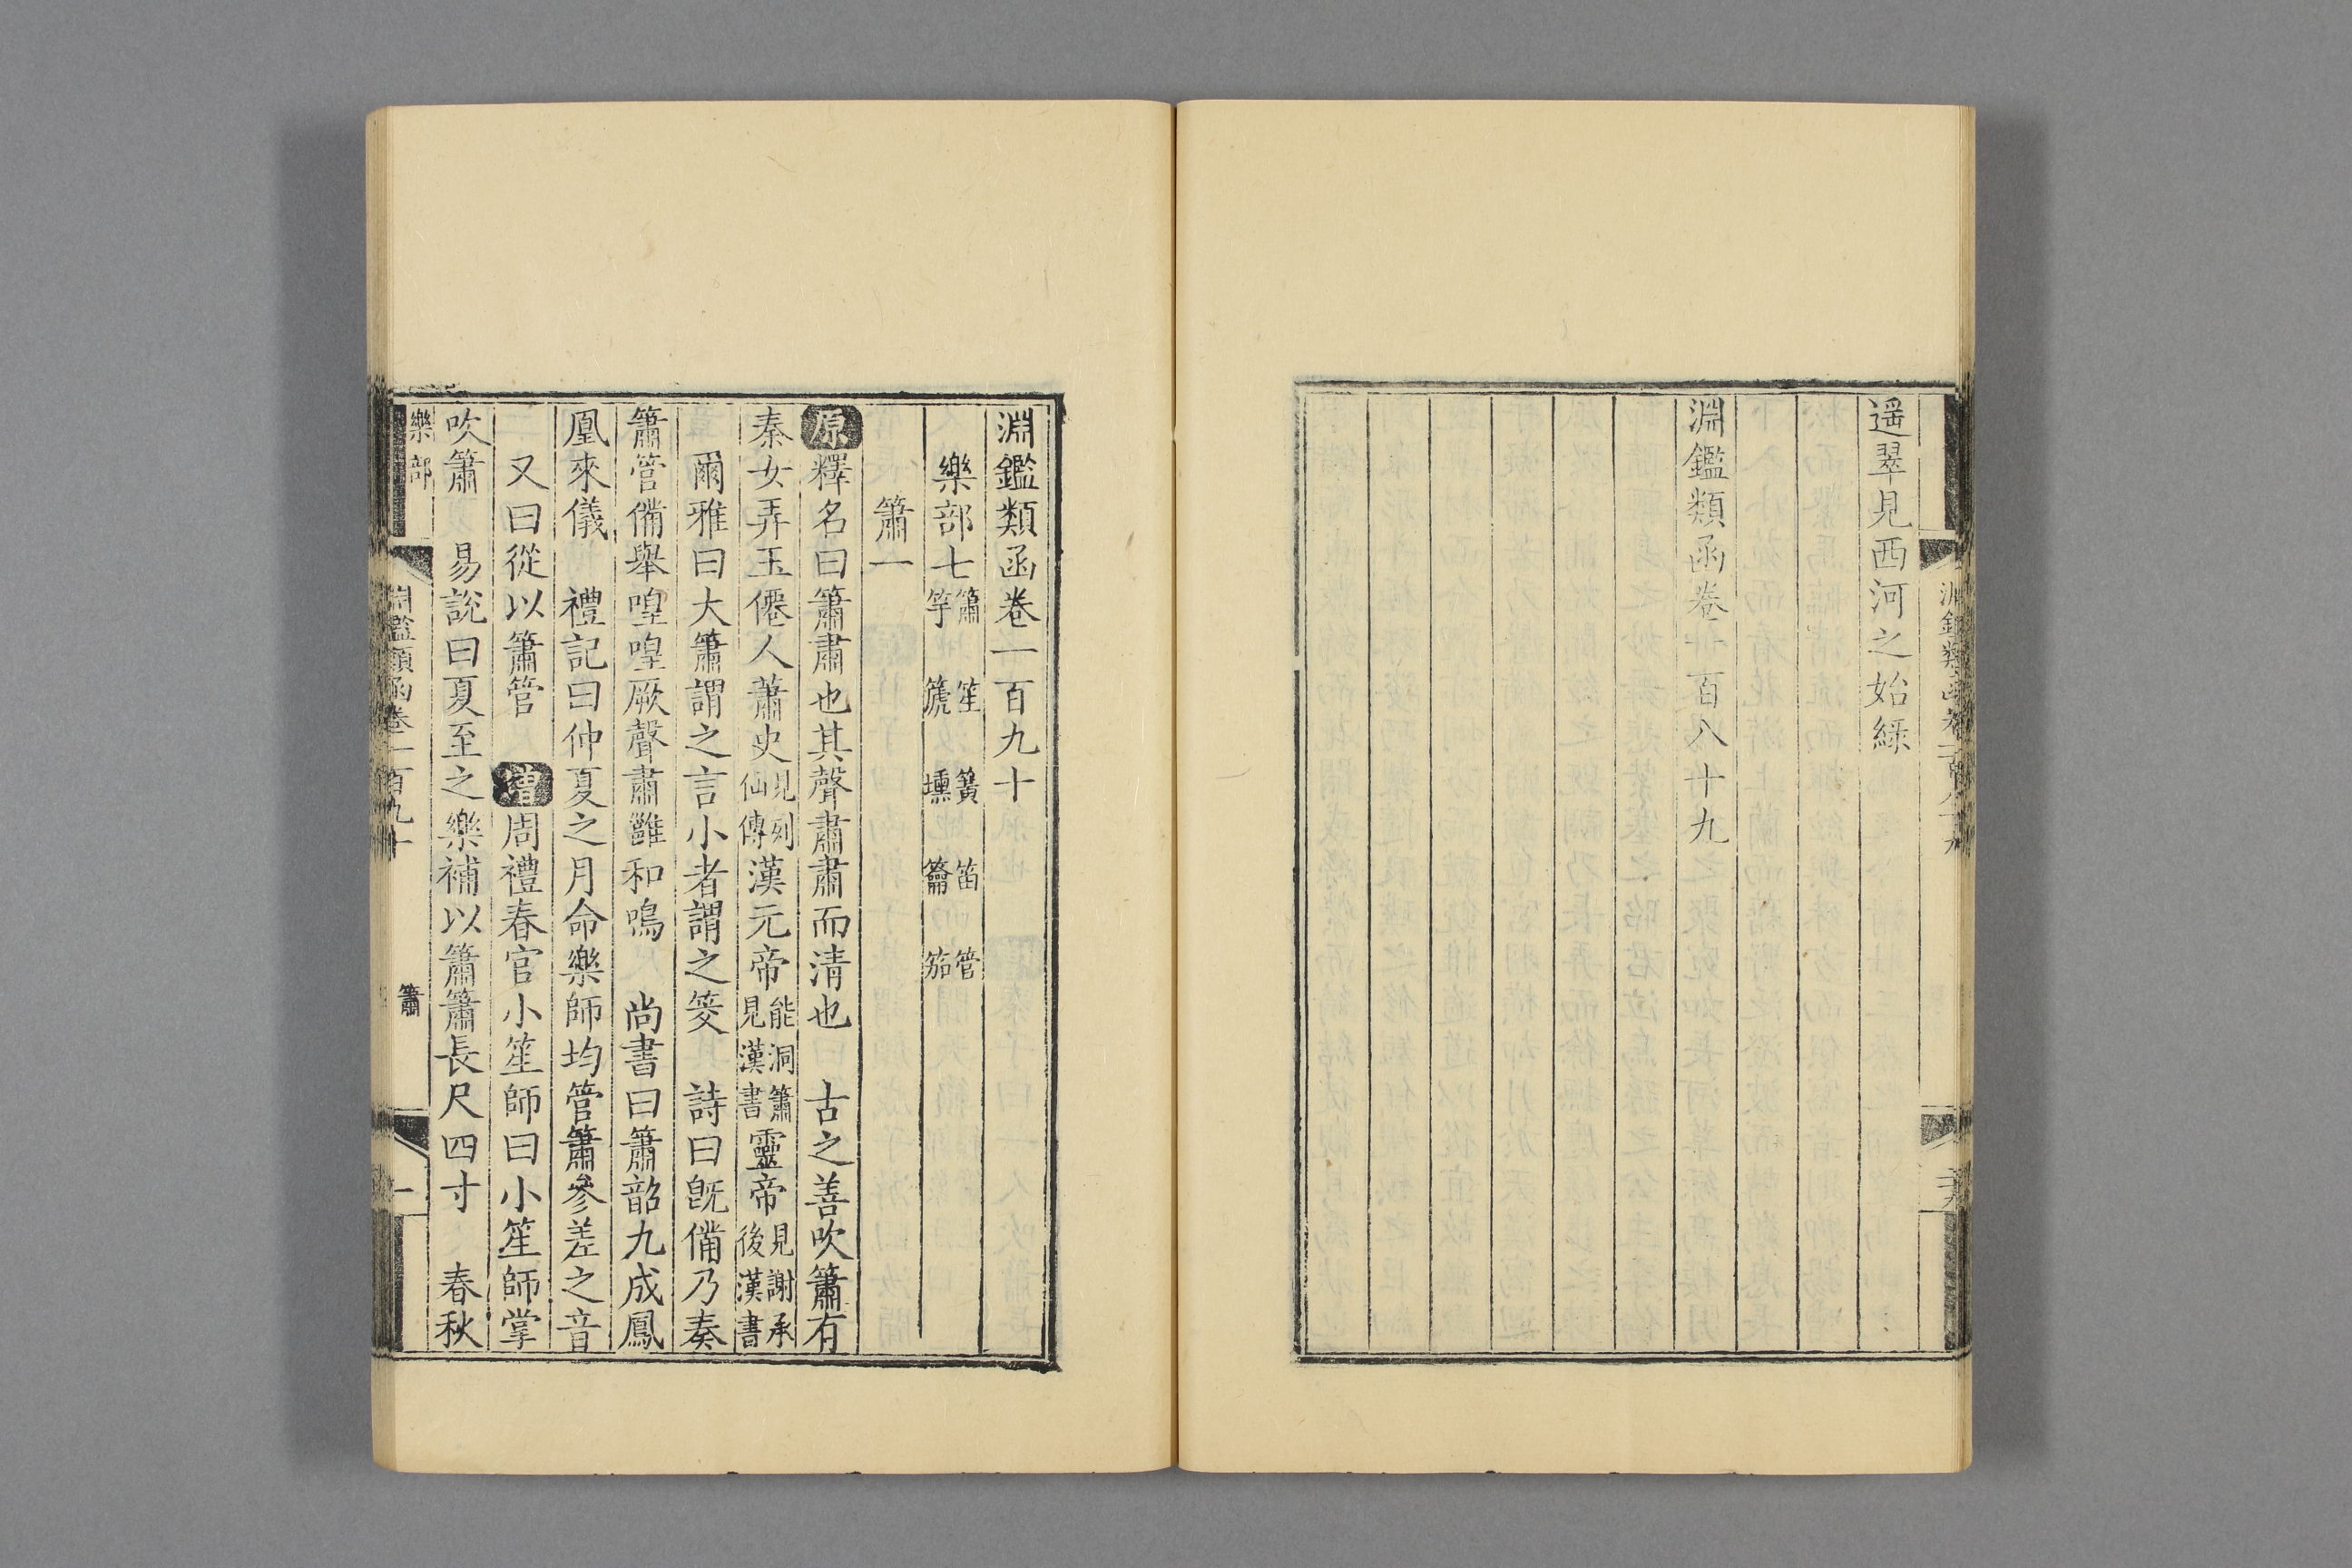 遥翠見西河之始緑
淵鑑類函卷一百八十九
淵鑑類函卷一百九十
樂部七簫 笙 簧 笛 管 竽 篪 壎 籥 笳
簫一
原釋名曰簫肅也其聲肅肅而清也 古之善吹簫有
秦女弄玉僊人蕭史見列仙傳漢元帝能洞簫見漢書靈帝見謝承後漢書
爾雅曰大簫謂之言小者謂之筊 詩曰旣備乃奏
簫管備舉喤喤厥聲肅雝和鳴 尚書曰簫韶九成鳳
凰來儀 禮記曰仲夏之月命樂師均管簫參差之音
又曰從以簫管 增周禮春官小笙師曰小笙師掌
吹簫 易說曰夏至之樂補以簫簫長尺四寸 春秋
樂部
淵鑑類函卷一百九十
簫
一